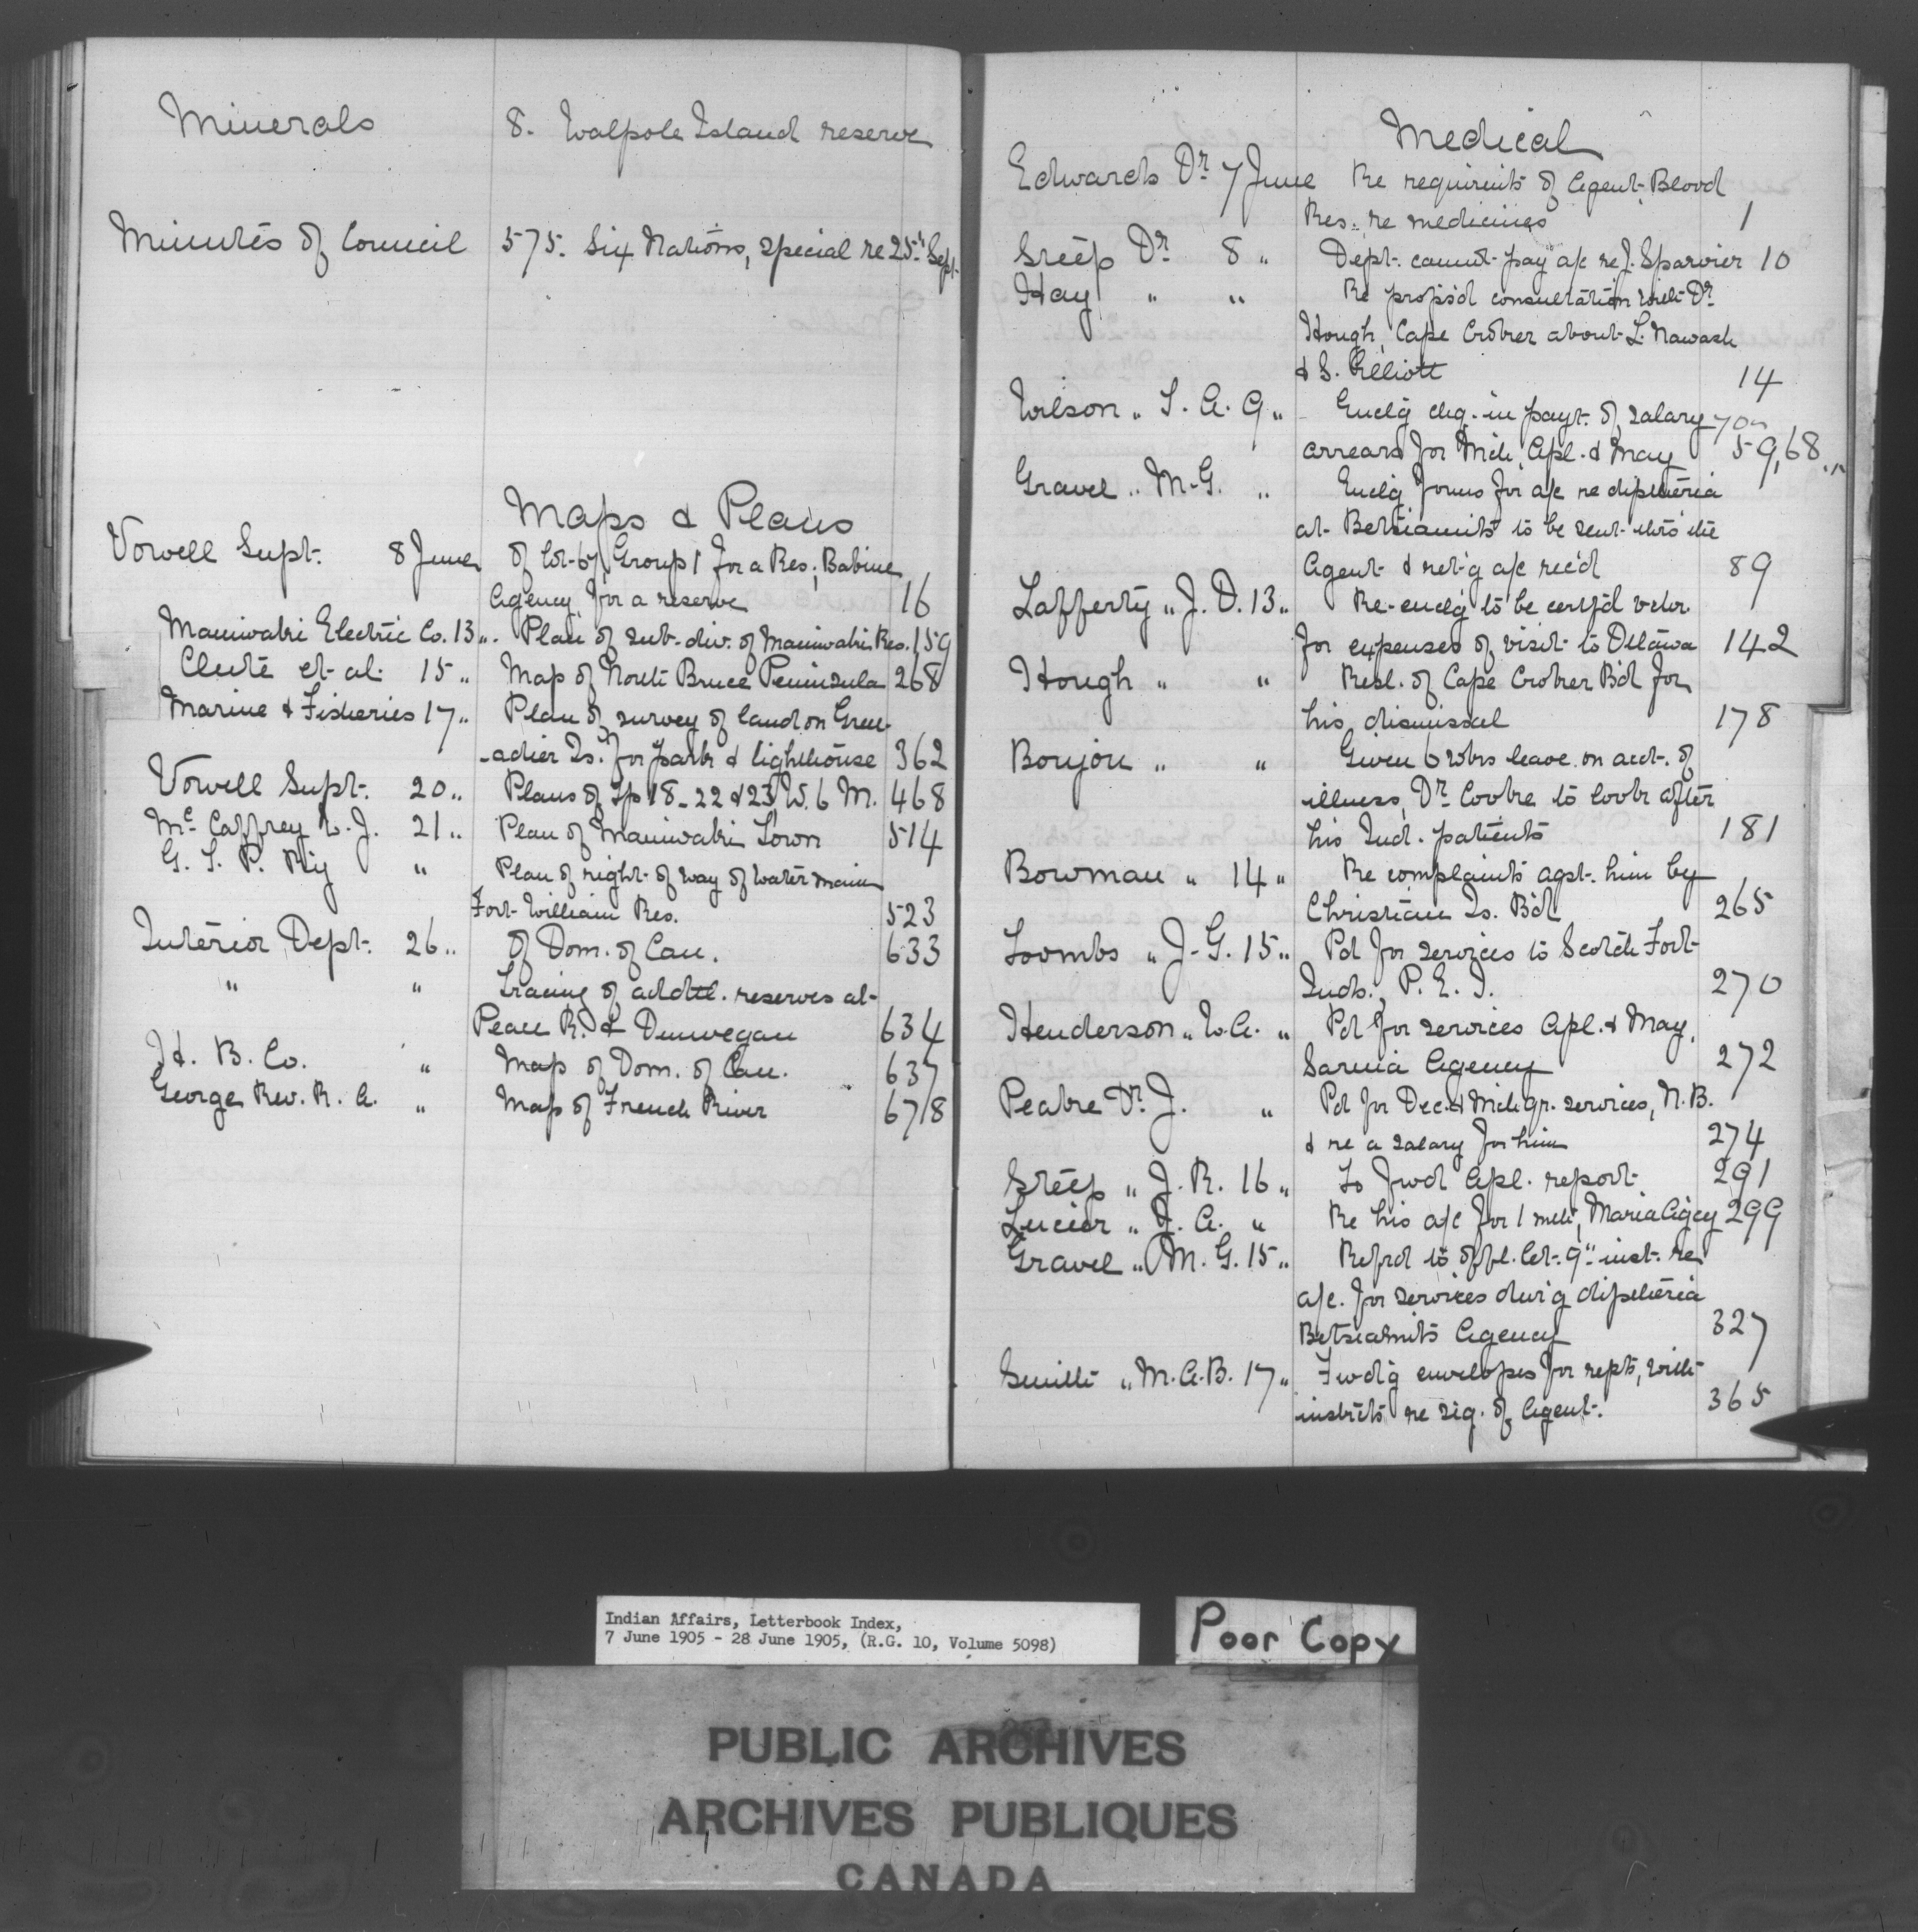 Minerals 8. Walpole Island reserve
Minutes of Council 575. Six Nations, special re 25th Sept.
Maps & Plans
Vowell Supt. 8 June of lot 67, Group 1 for a Res., Babine
Agency, for a reserve 16
Maniwaki Electric Co. 13 ". Plan of sub-div. of Maniwaki Res. 159
Clute et al. 15 " Map of North Bruce Peninsula 268
Marine & Fisheries 17 " Plan of survey of land on Gren-
-adier Is. for park & lighthouse 362
Vowell Supt. 20 " Plans of Tp 18-22 & 23, W. 6 M. 468
Mc Caffrey L. J. 21 " Plan of Maniwaki Town 514
G. T. P. Ry " Plan of right of way of water main
Fort William Res. 523
Interior Dept. 26 " of Dom. of Can. 633
" " Tracing of addtl. reserves at
Peace R. & Dunvegan 634
H. B. Co. " Map of Dom. of Can. 637
George Rev. R. A. " Map of French River 678
Medical
Edwards Dr. 7 June Re requirents of Agent Blood
Res. re medicines 1
Steep Dr. 8 " Dept. cannot pay a/c re J. Sparvier 10
Hay " " Re propsd consultation with Dr.
Hough, Cape Croker about L. Nawash
& S. Elliott 14
Wilson " T. A. 9 " Enclg chq. in payt. of salary 70
arrears for Mch, Apl. & May 59, 68
Gravel " M. G. " Enclg forms for a/c re diphtheria
at Betsiamits to be sent thro' the
Agent & retg a/c rec'd 89
Lafferty " J. D. 13 " Re-enclg to be certfd vchr.
for expenses of visit to Ottawa 142
Hough " " Resl. of Cape Croker Bd for
his dismissal 178
Bonjou " " Given 6 wks leave on acct. of
illness, Dr. Cooke to look after
his Ind. patients 181
Bowman " 14 " Re complaints agst. him by
Christian Is. Bd 265
Toombs " J. G. 15 " Pd for services to Scotch Fort
Inds., P. E. I. 270
Henderson " W. A. " Pd for services Apl. & May,
Sarnia Agency 272
Peake Dr. J. " Pd for Dec. & Mch qr. services, N. B.
& re a salary for him 274
Steep " J. R. 16 " To fwd Apl. report 291
Lucier " J. A. " Re his a/c for 1 mth, Maria Agcy 299
Gravel " M. G. 15 " Refrd to offl. let. 9th inst. re
a/c. for services durg diphtheria
Betsiamits Agency 327
Smith " M. A. B. 17 " Fwdg envelopes for repts, with
instrcts re sig. of Agent. 365
Indian Affairs, Letterbook Index,
7 June 1905 - 28 June 1905, (R.G. 10, Volume 5098)
Poor Copy
PUBLIC ARCHIVES
ARCHIVES PUBLIQUES
CANADA